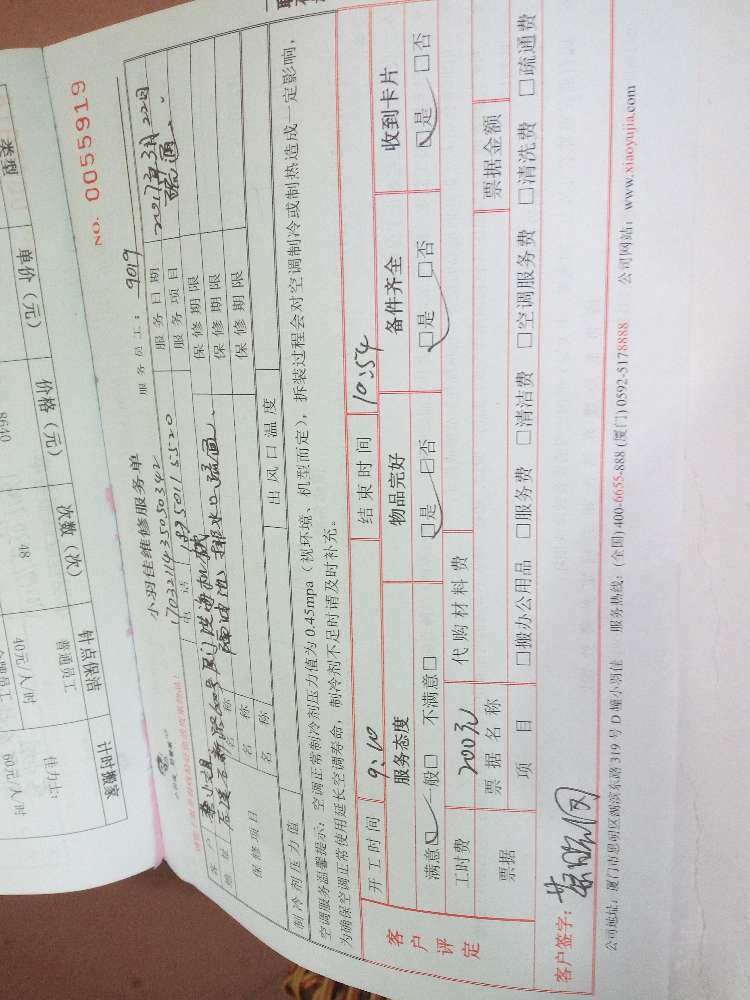 类型
单价（元）
价格（元）
8640
次数（次）
48
钟点保洁
普通员工
40元/人/时
计时搬家
佳力士:
60元/人/时
NO. 0055919
小羽佳维修服务单
服务员工: 9019
17032114235050342
电话
18750115520
服务日期
2021年3月22日
地址
服务项目
疏通
名称
保修期限
保修项目
名称
保修期限
名称
保修期限
制冷剂压力值
出风口温度
空调服务温馨提示: 空调正常制冷剂压力值为0.45mpa（视环境、机型而定），拆装过程会对空调制冷或制热造成一定影响，
为确保空调正常使用延长空调寿命，制冷剂不足时请及时补充。
客户评定
开工时间
9:10
结束时间
10:54
服务态度
物品完好
备件齐全
收到卡片
满意☑ 一般□ 不满意□
☑是 □否
☑是 □否
☑是 □否
工时费
200元
代购材料费
票据
票据名称
票据金额
项目
□搬办公用品 □服务费 □清洁费 □空调服务费 □清洗费 □疏通费
客户签字:
公司地址: 厦门市思明区湖滨东路319号D幢小羽佳 服务热线: (全国) 400-6655-888 (厦门) 0592-5178888 公司网站: www.xiaoyujia.com